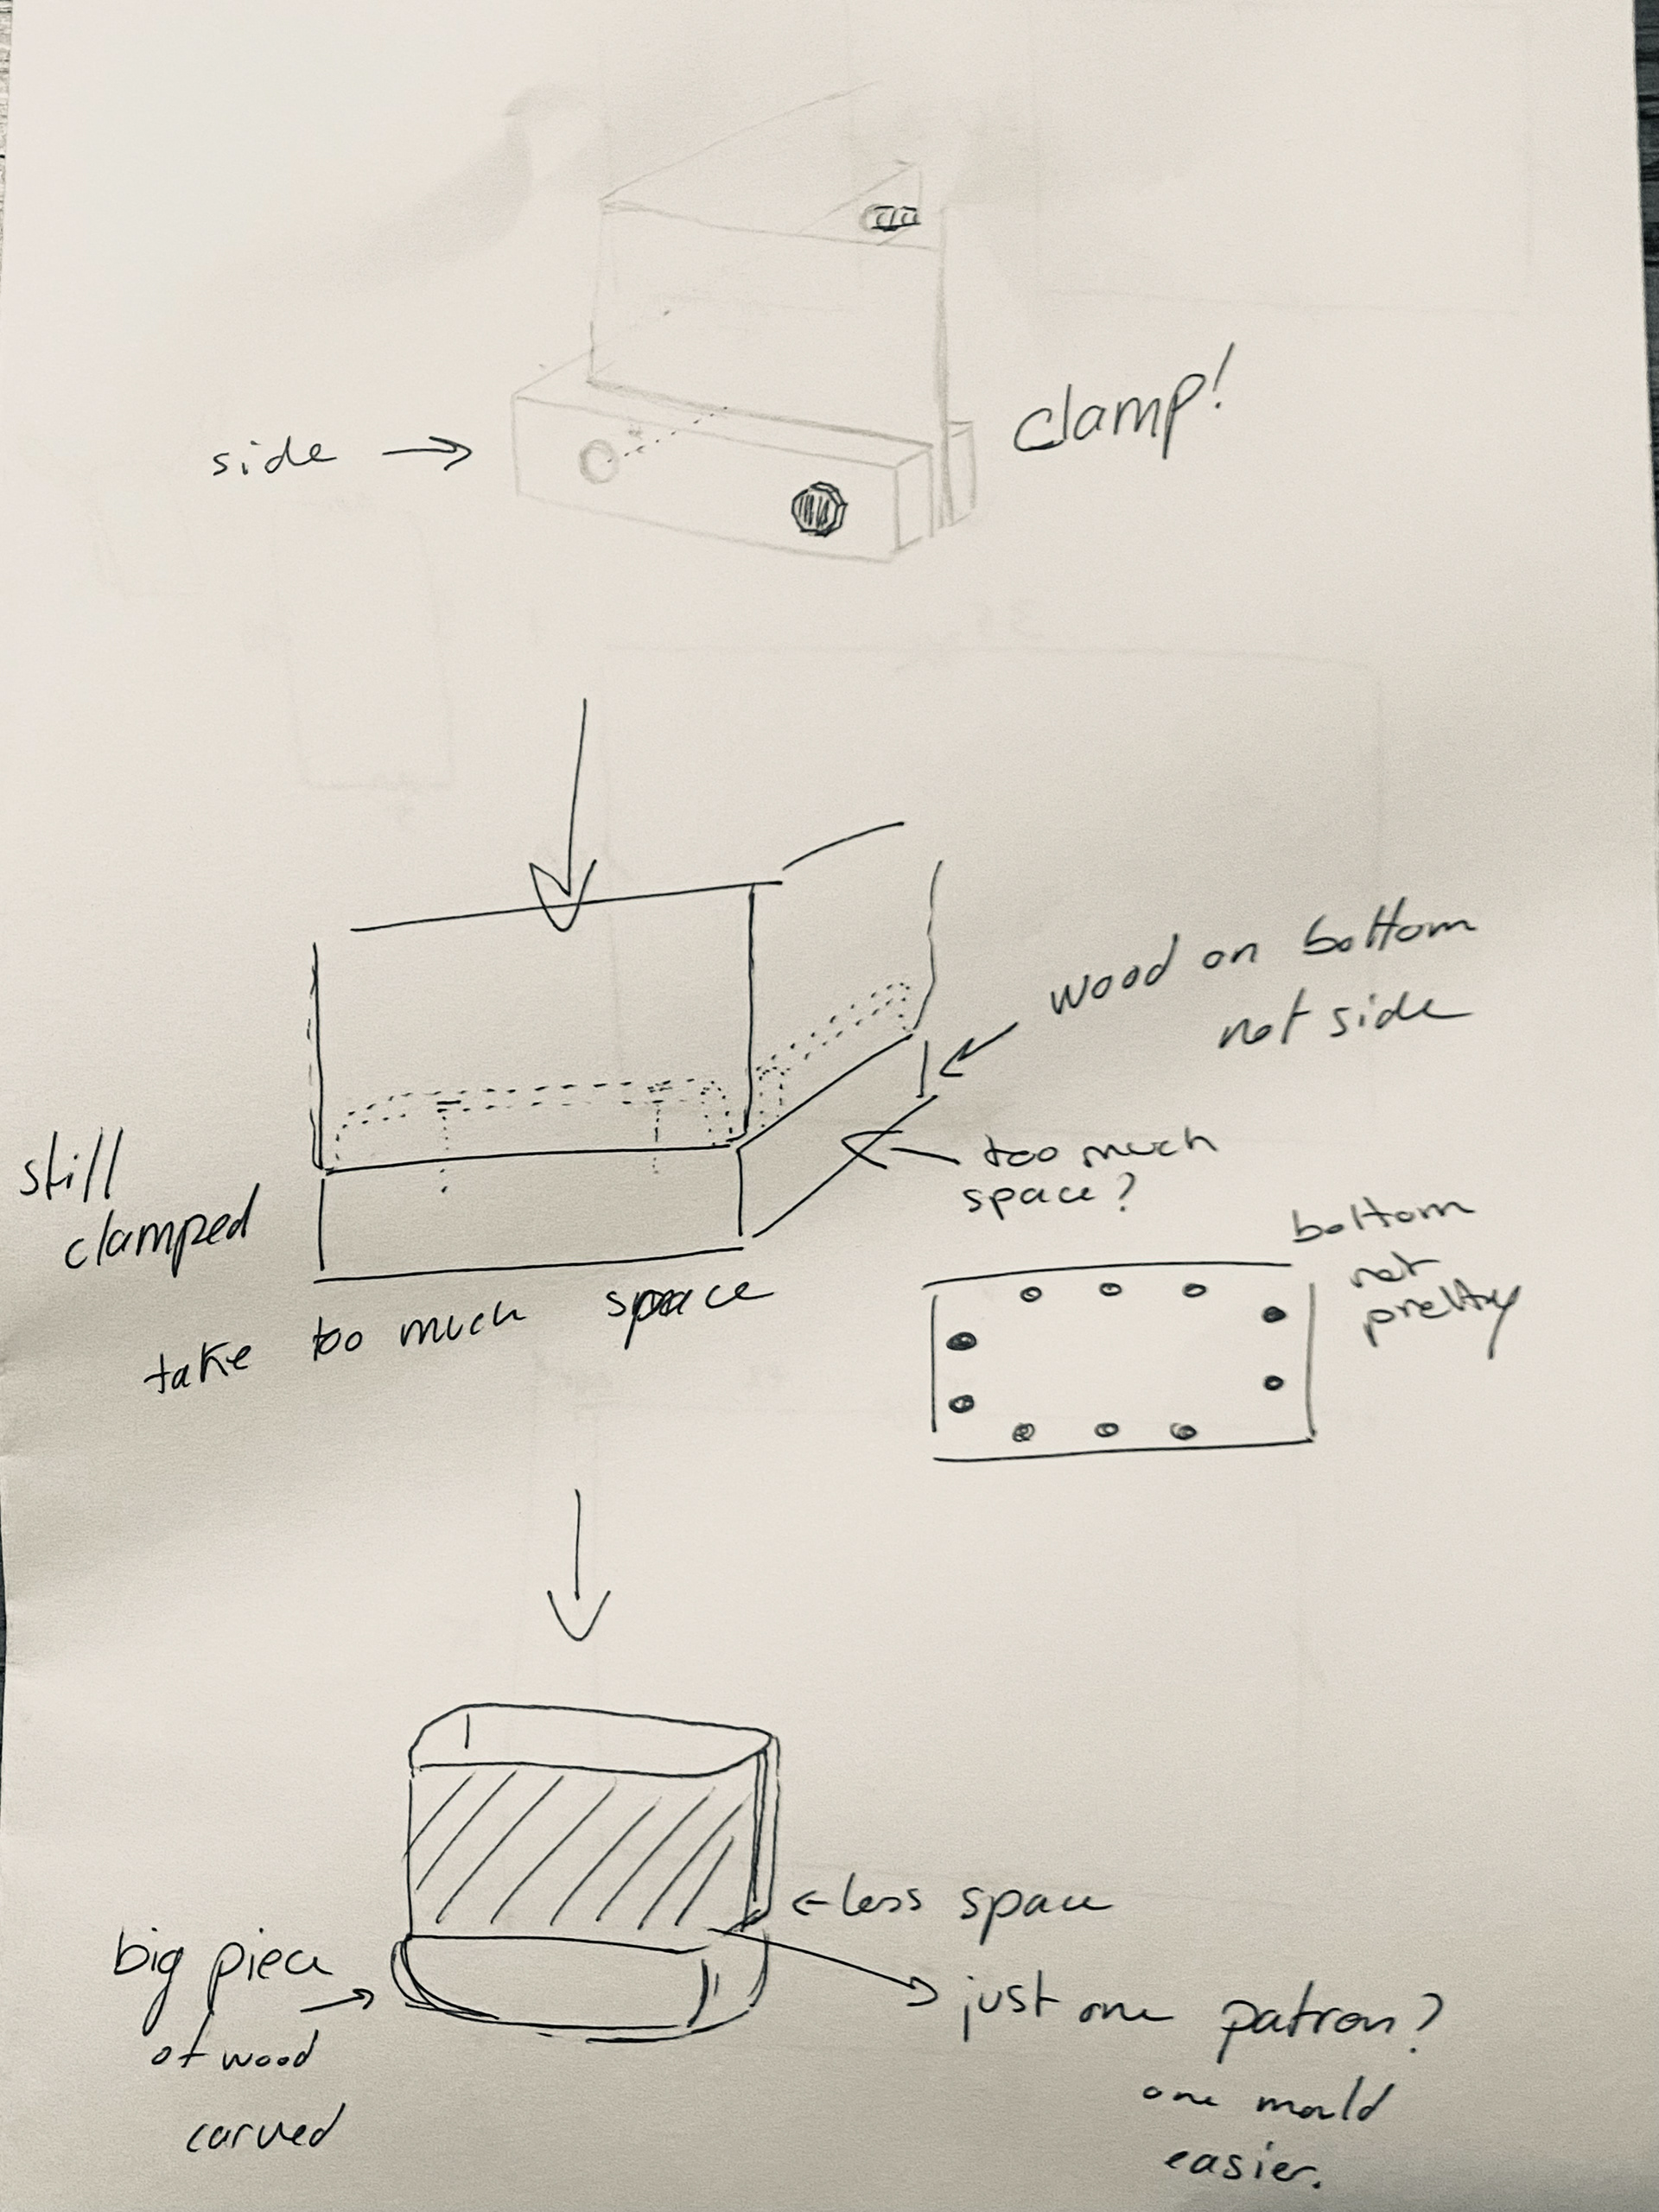 side
clamp!
wood on bottom
not side
still
clamped
too much
space?
bottom
not
pretty
take too much space
less space
big piece
of wood
carved
just one patron?
one mould
easier.